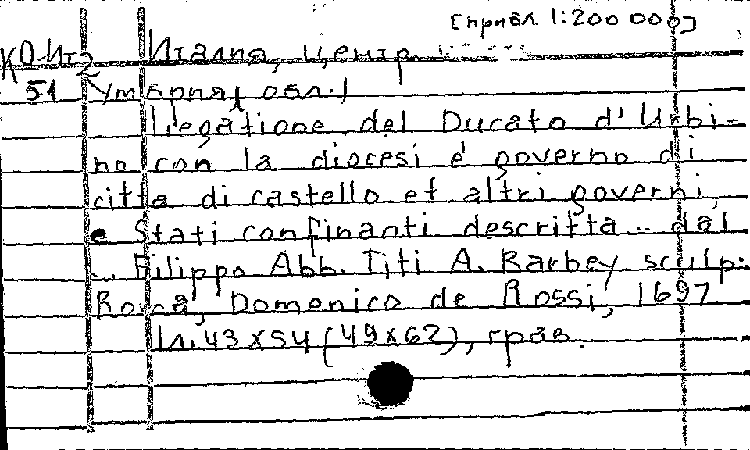 [прибл 1:200 000]
КО Ит2 Италия, центр.
51 Умбрия, обл.
Legatione del Ducato d'Urbi-
no con la diocesi e governo di
citta di castello et altri governi,
e Stati confinanti descritta.. dal
... Filippo Abb. Titi A. Barbey sculp.
Roma, Domenico de Rossi, 1697
1л. 43x54 (49x62), грав.